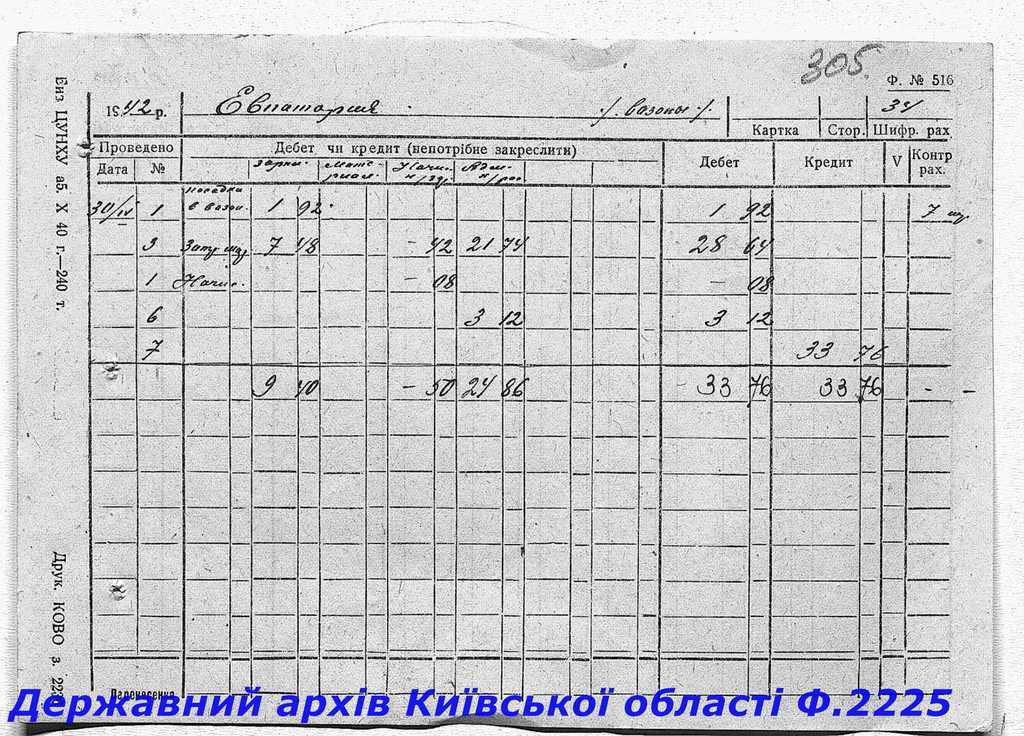 305.
Ф. № 516
1942 р. Евпатория ./. вазоны ./. 34
Картка Стор. Шифр. рах
Проведено Дебет чи кредит (непотрібне закреслити) Дебет Кредит V Контр рах.
Дата №
30/IV 1 посадка в вазон. 1 92 1 92 7
3 7 48 – 42 21 74 28 64
1 Начис. – 08 – 08
6 3 12 3 12
7 33 76
9 40 – 50 24 86 33 76 33 76 –
Перенесення
Биз ЦУНКУ аб. X 40 г.—240 т.
Друк. КОВО з.
Державний архів Київської області Ф.2225